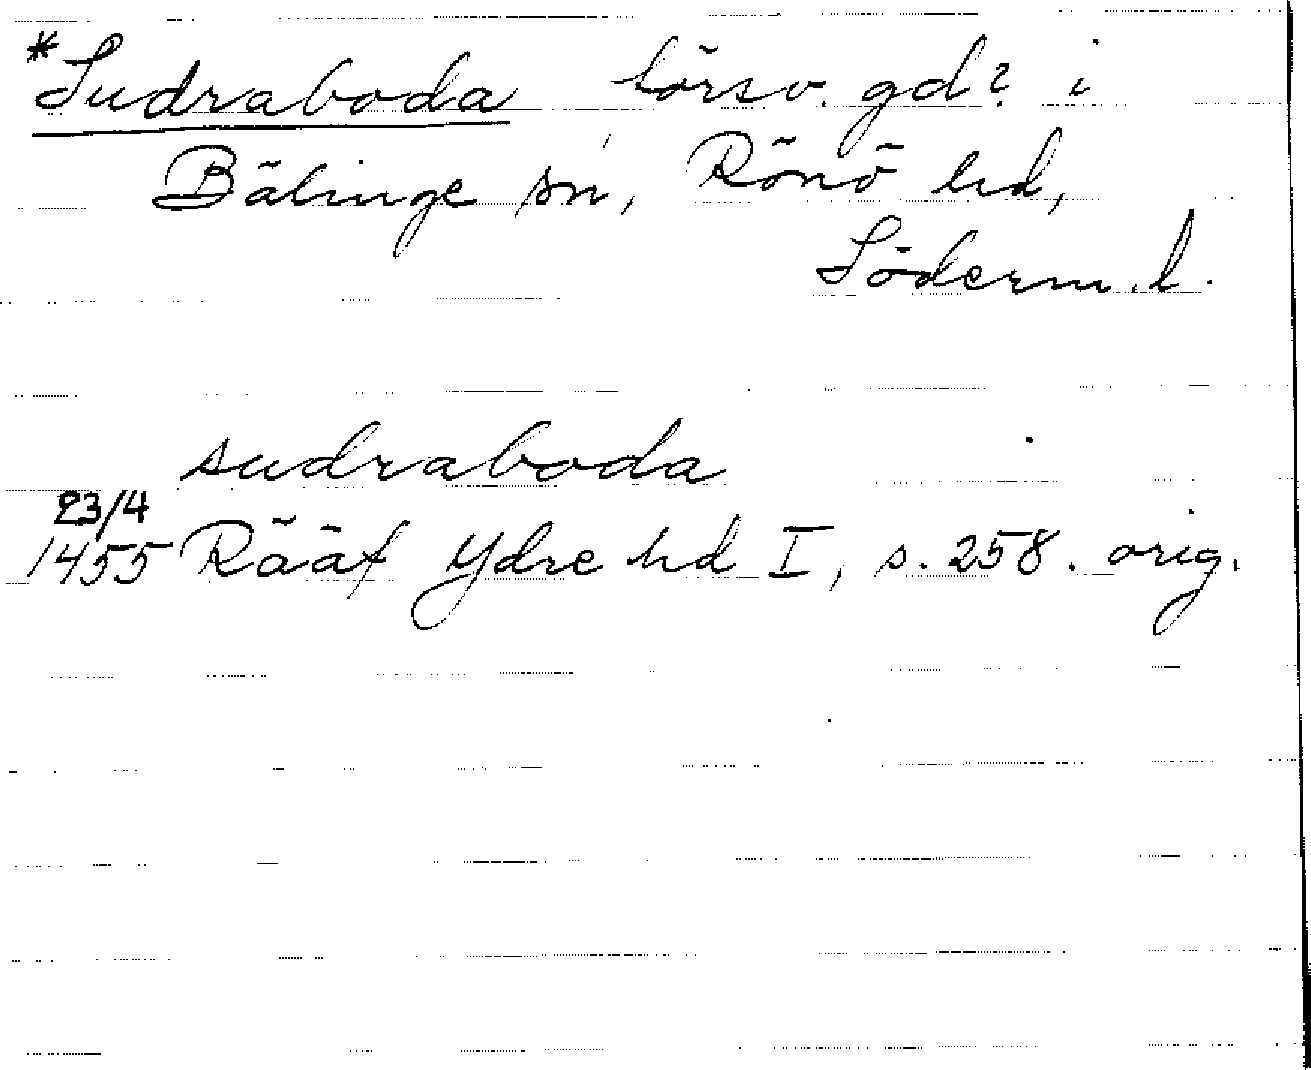 *Sudraboda försv. gd? i
Bälinge sn, Rönö hd,
Söderm. l.
sudraboda
23/4
1455 Rääf Ydre hd I, s. 258. orig.